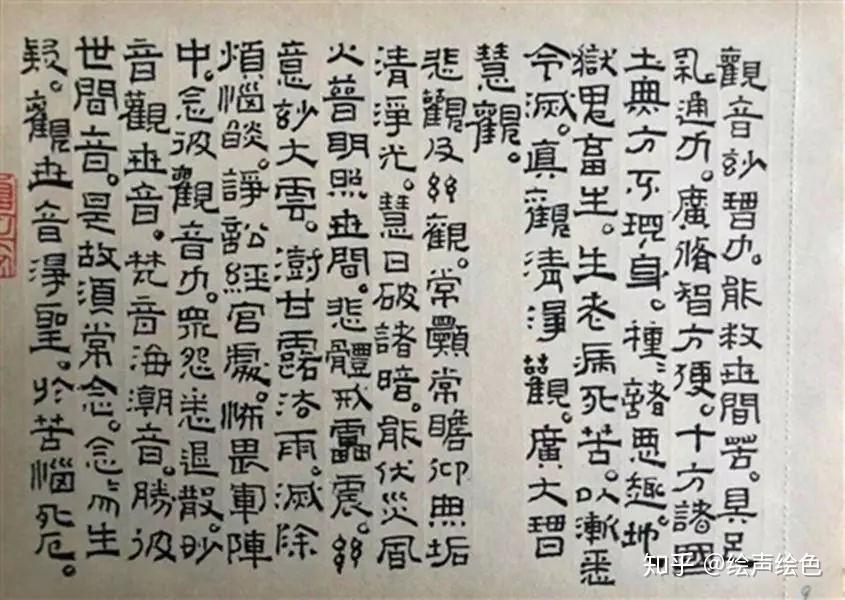 觀音妙智力。能救世間苦。具足
神通力。廣脩智方便。十方諸國
土無方不現身。種〻諸惡趣。地
獄鬼畜生。生老病死苦。以漸悉
令滅。真觀清淨觀。廣大智
慧觀。
悲觀及慈觀。常願常瞻仰無垢
清淨光。慧日破諸暗。能伏災風
火普明照世間。悲體戒雷震。慈
意妙大雲。澍甘露法雨。滅除
煩惱燄。諍訟經官處。怖畏軍陣
中。念彼觀音力。眾怨悉退散。妙
音觀世音。梵音海潮音。勝彼
世間音。是故須常念。念〻勿生
疑。觀世音淨聖。於苦惱死厄。
9
知乎 @绘声绘色